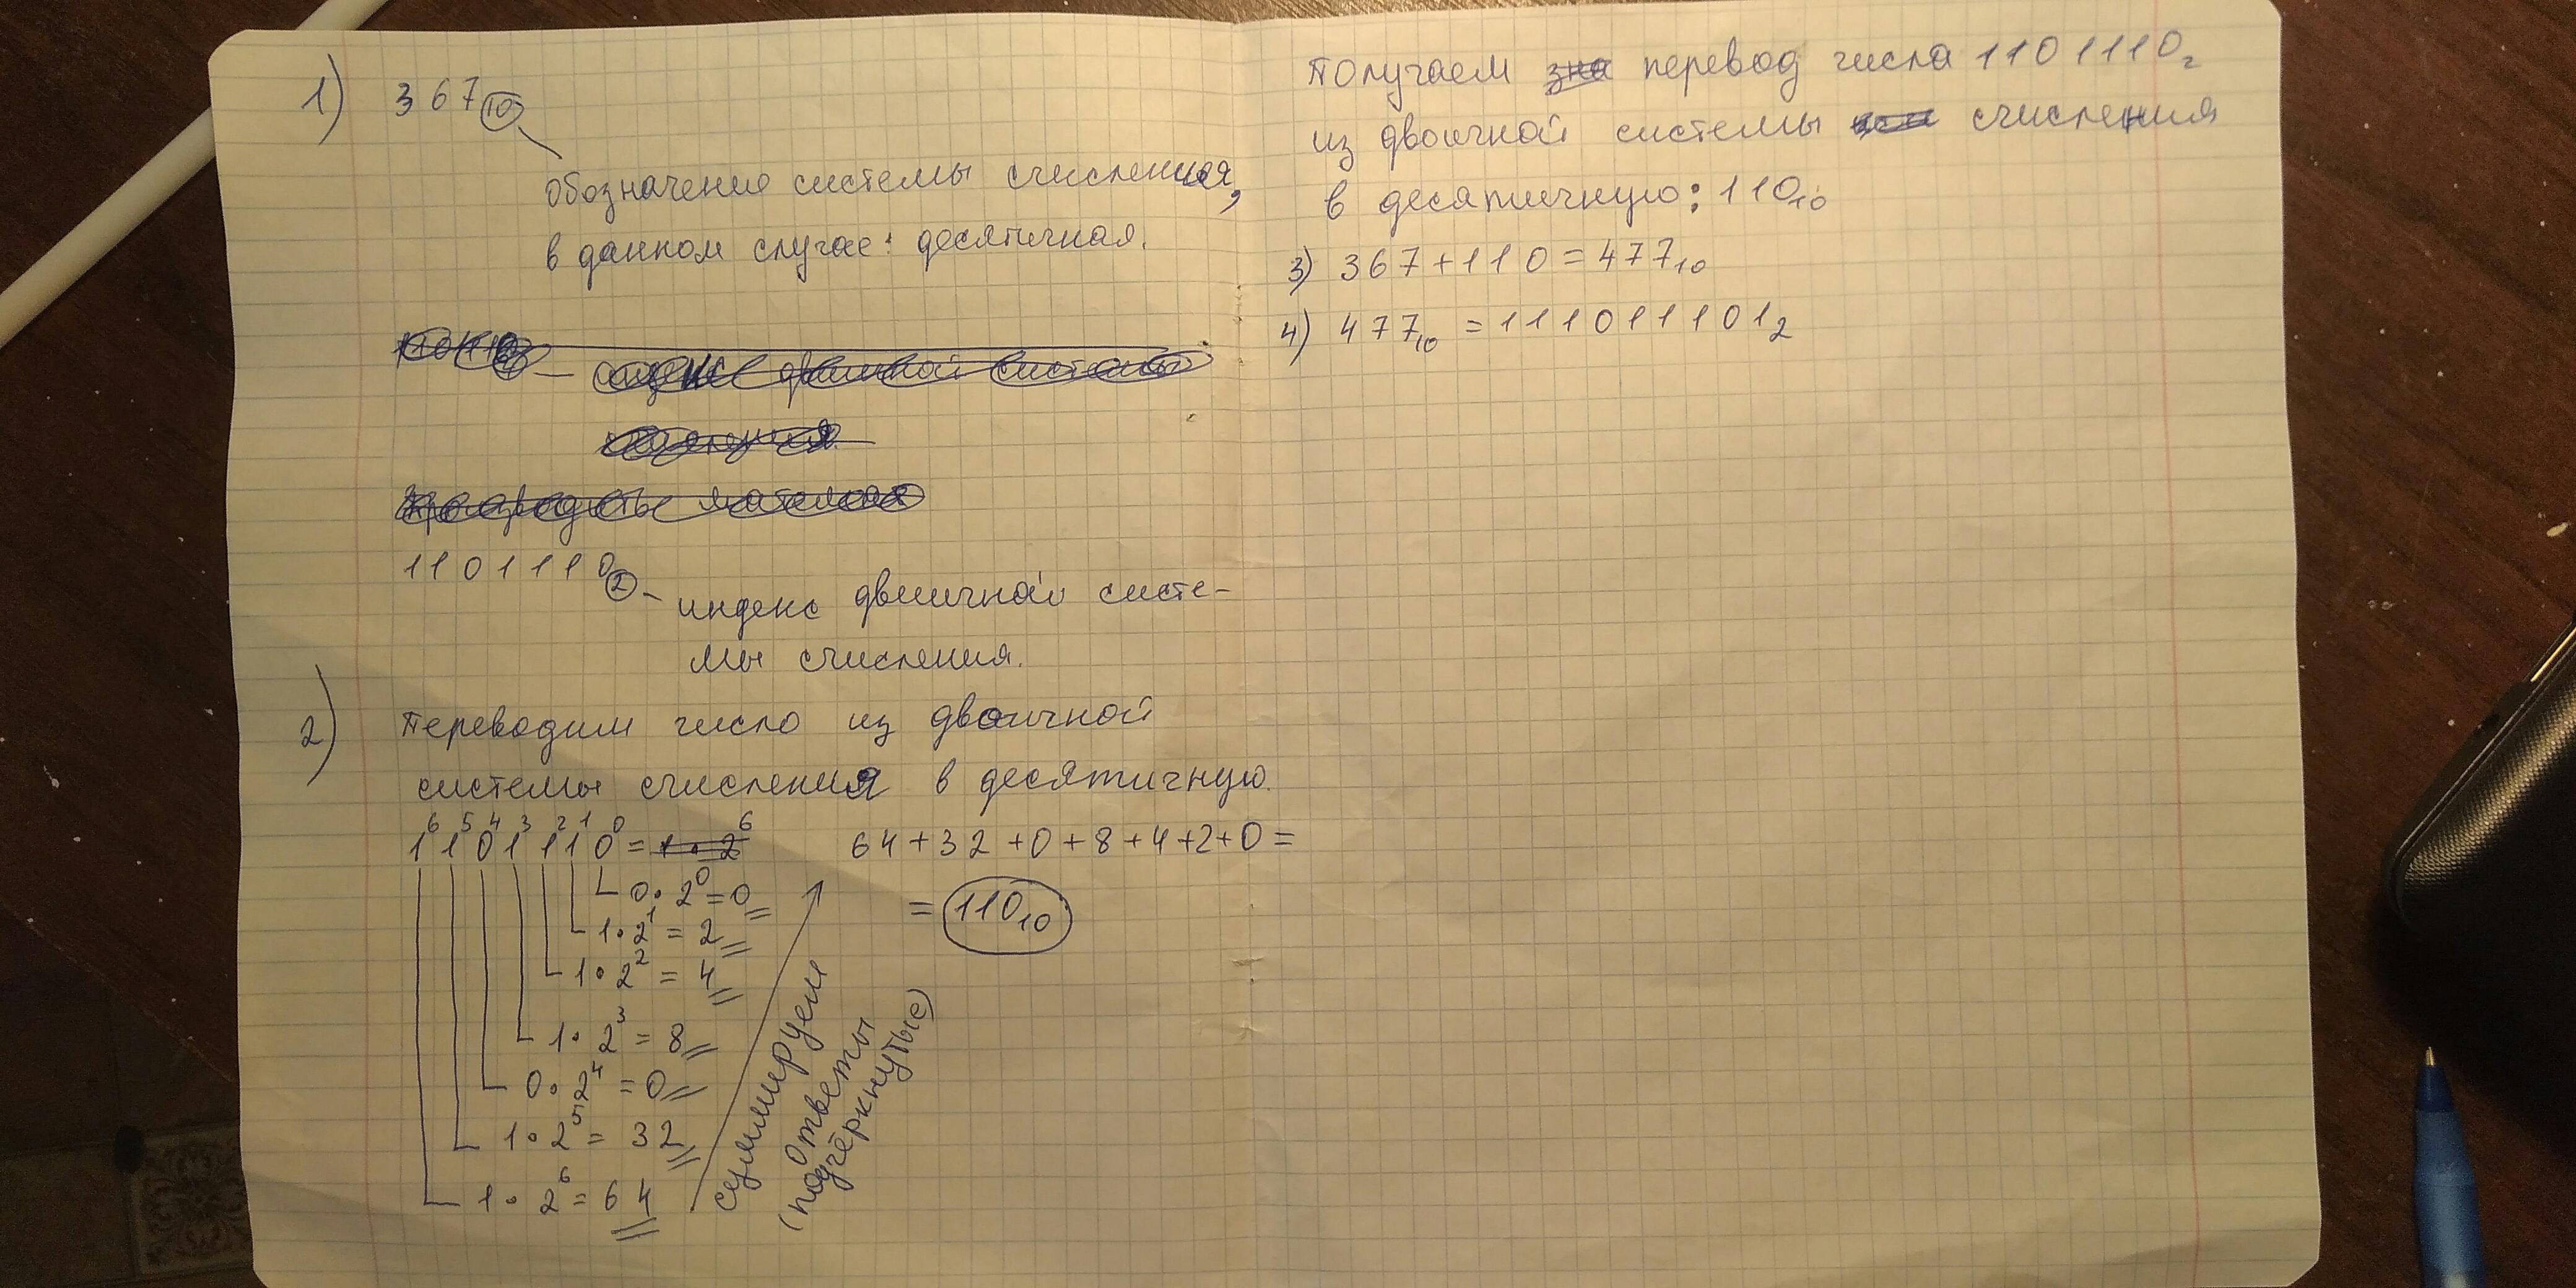 1) 367₁₀
обозначение системы счисления,
в данном случае: десятичная.
1101110₂ - индекс двоичной систе-
мы счисления.
2) Переводим число из двоичной
системы счисления в десятичную.
6 5 4 3 2 1 0
1101110 = 1·2⁶
0·2⁰=0
1·2¹=2
1·2²=4
1·2³=8
0·2⁴=0
1·2⁵=32
1·2⁶=64
суммируем
ответы
(подчёркнутые)
64+32+0+8+4+2+0=
=110₁₀
Получаем зна перевод числа 1101110₂
из двоичной системы счисления
в десятичную: 110₁₀
3) 367+110=477₁₀
4) 477₁₀=111011101₂